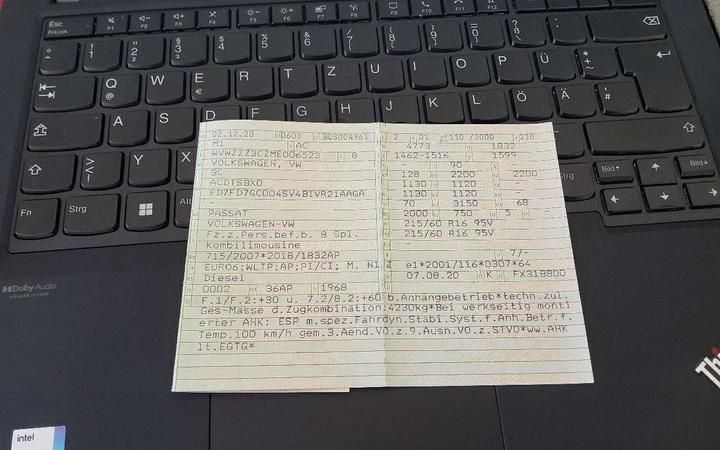 Esc
FnLock
F1
F2
F3
F4
F5
F6
F7
F8
F9
F10
F11
F12
Q W E R T Z U I O P Ü
A S Ö Ä
Y X
Fn Strg Alt
Strg Bild Bild
Dolby Audio
intel
Thi
02.12.20 0603 BUS004961 2 01 110 /3000 210
M1 AC 4773 1832
WVWZZZ3CZME006523 8 1462-1516 1599
VOLKSWAGEN, VW - 90 -
3C 128 2200 2200
ACDTSBX0 1130 1120 -
FD7FD7GC004SV4BIVR21AAGA 1130 1120 -
70 3150 68
PASSAT 2000 750 5 -
VOLKSWAGEN-VW 215/60 R16 95V
Fz.z.Pers.bef.b. 8 Spl. 215/60 R16 95V
Kombilimousine -
715/2007*2018/1832AP 7/-
EURO6;WLTP;AP;PI/CI; M, N1 I e1*2001/116*0307*64
Diesel 07.08.20 K FX318800
0002 36AP 1968
F.1/F.2:+30 u. 7.2/8.2:+60 b.Anhangebetrieb*techn.zul.
Ges-Masse d.Zugkombination:4230kg*Bei werkseitig monti
erter AHK: ESP m.spez.Fahrdyn.Stabi.Syst.f.Anh.Betr.f.
Temp.100 km/h gem.3.Aend.VO.z.9.Ausn.VO.z.STVO*ww.AHK
lt.EGTG*